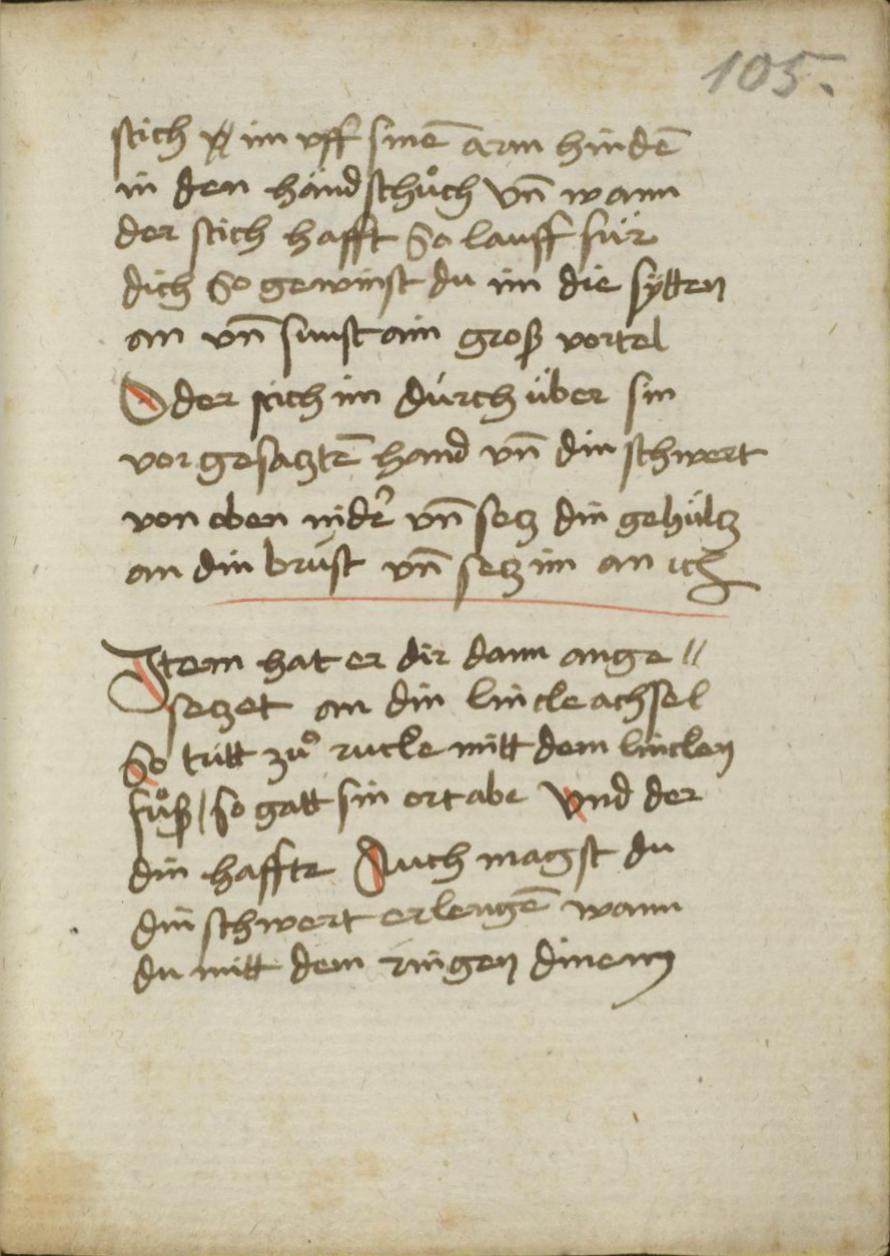 105.
stich im vff sinē arm hindē
in den händschůch vn̄ wann
der stich hafft So lauff für
dich So gewinst du im die sÿtten
an vn̄ sunst ain groß vortel
Oder stich im dúrch über sin
vor gesatztē hand vn̄ din schwert
von oben nider vn̄ setz din gehültz
an din brúst vn̄ setz im an ⁊cz
Item hat er dir dann ange〃
setzet an din lincke achsel
So tritt zů rucke mitt dem lincken
fůß / so gatt sin ort abe Vnd der
din haffte Auch magst du
din schwert erlengē wann
du mitt dem ringen dinem